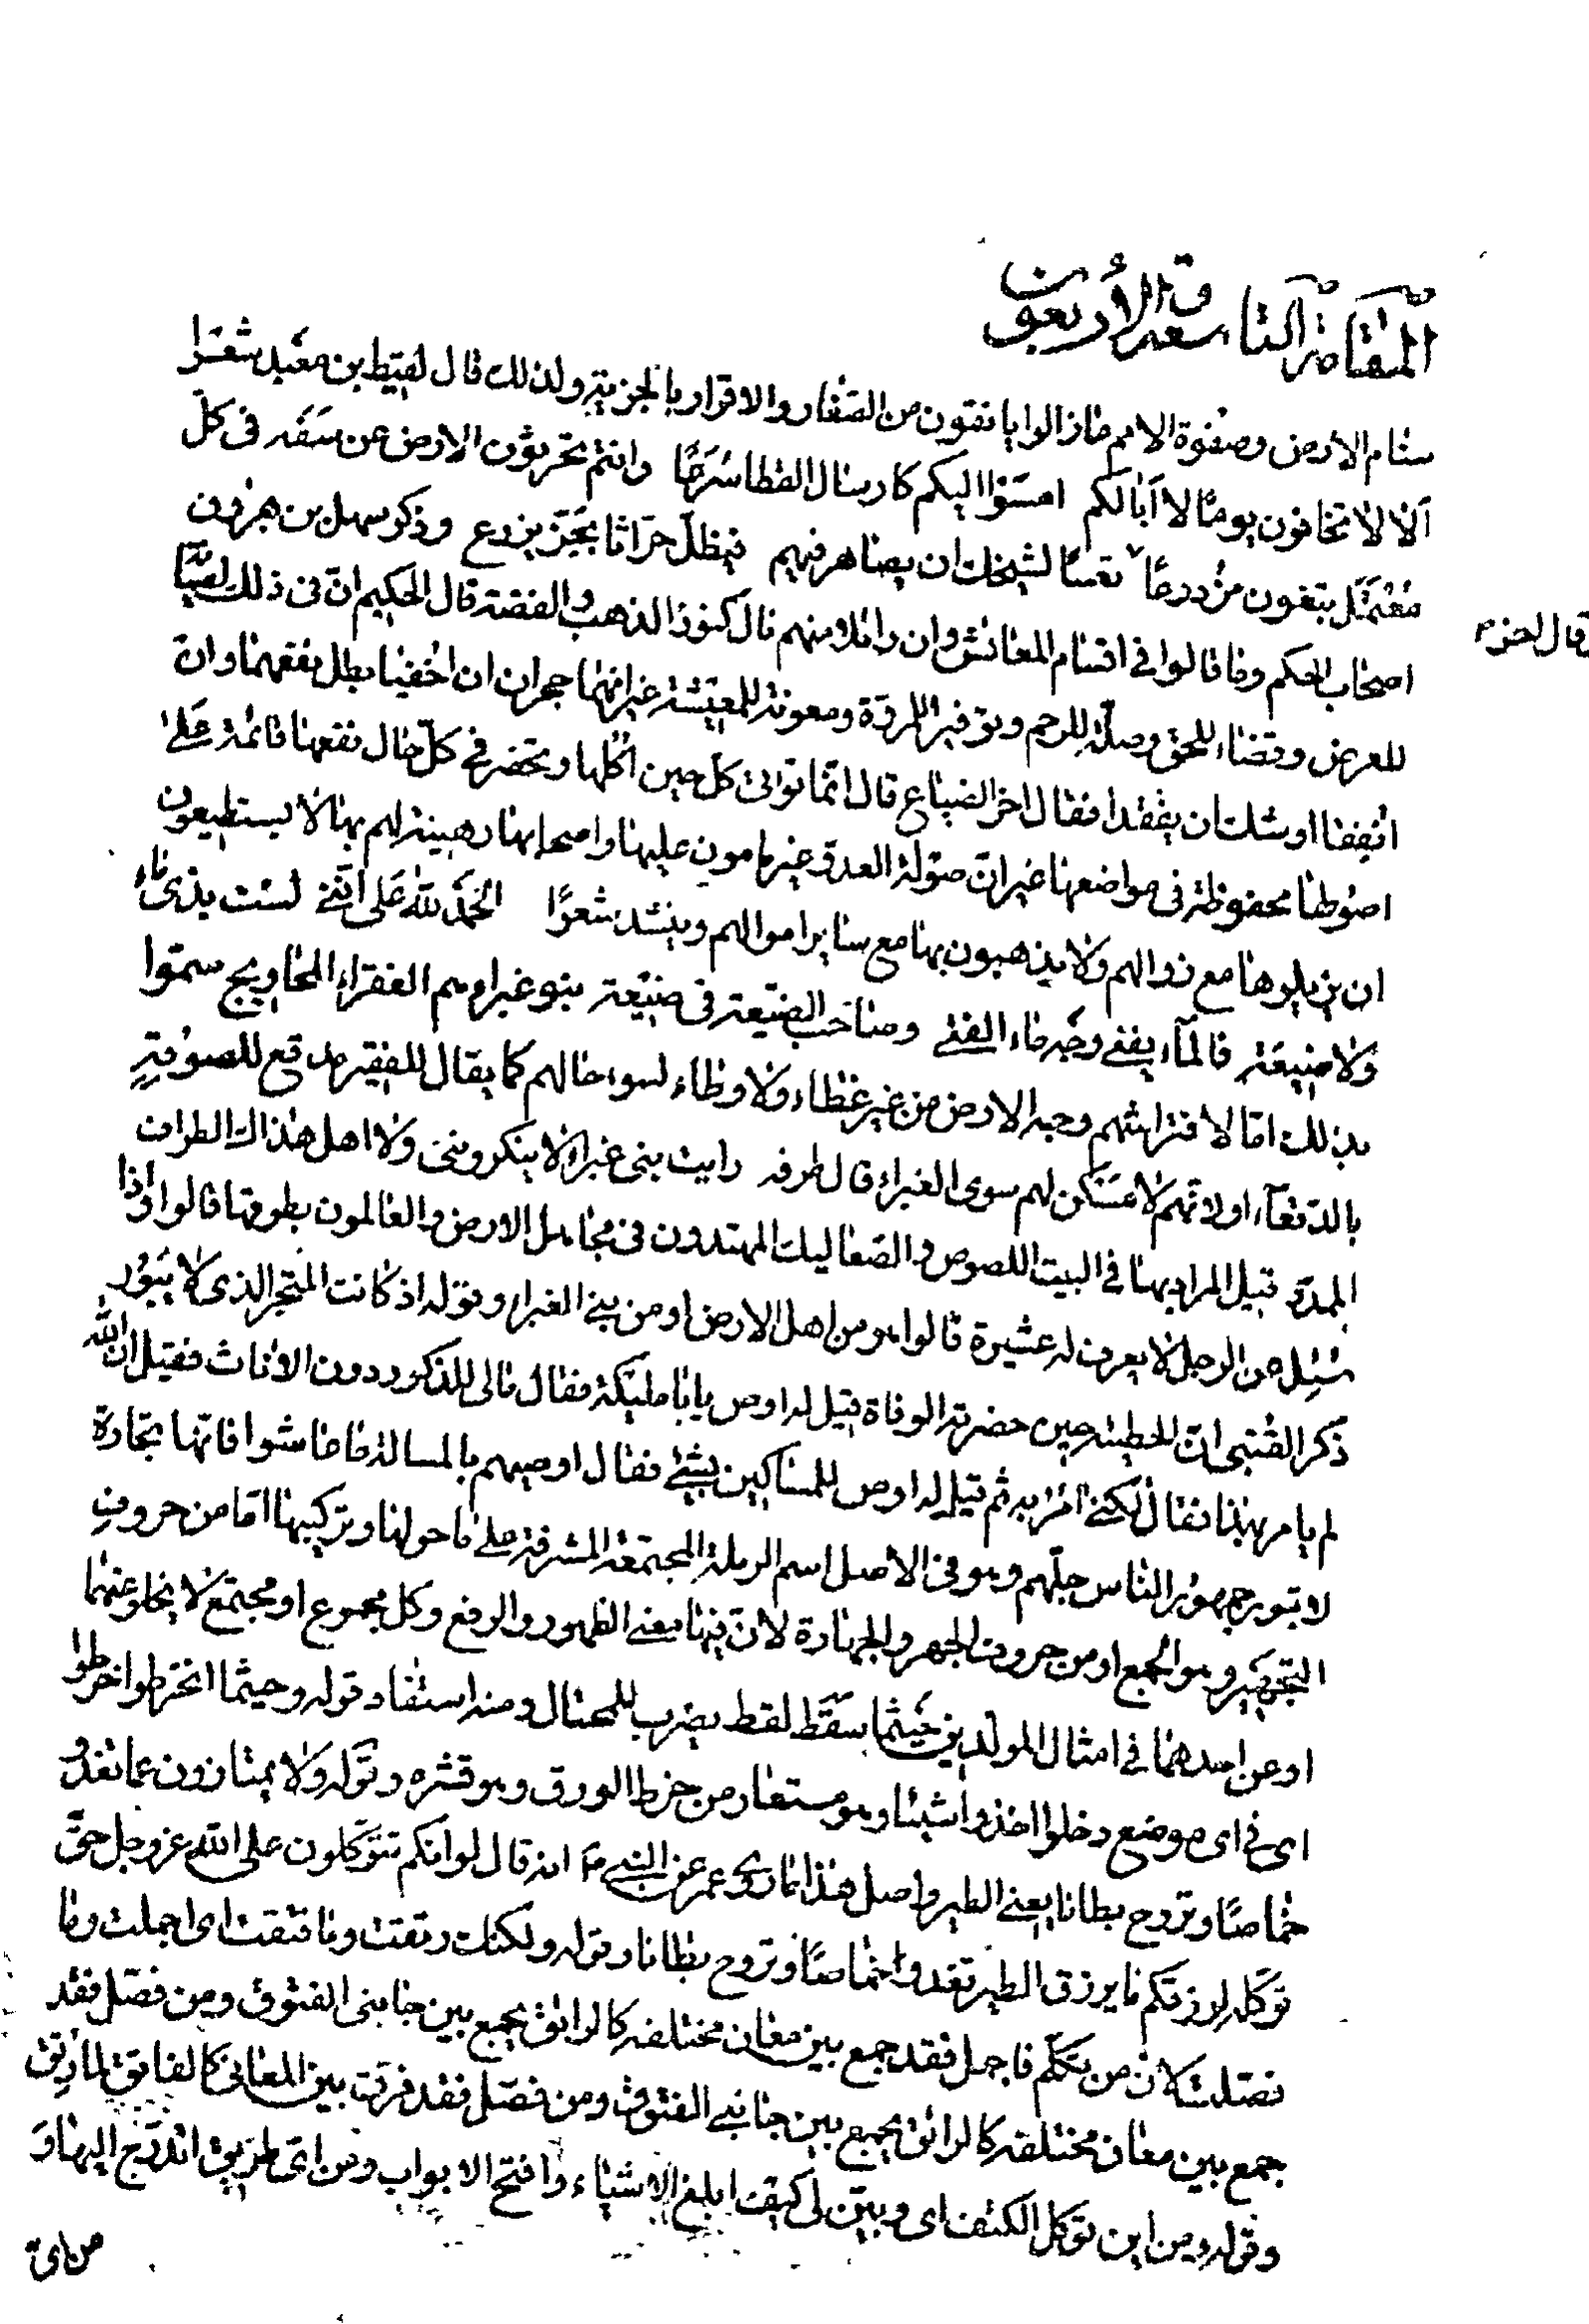 المقامة التاسعة الأربعون
سنام الارض وصفوة الامم مازالوا يانفون من الصغار والاقرار بالجزية ولذلك قال لقيط بن معبد شعرا
الا لا تخافون يومًا لا ابا لكم امسوا اليكم كارسال القطا سرحًا وانتم تحرثون الارض عن سفه فى كلّ
معتمل تبتغون مزدرعًا تعسًا لشيخك ان يصاهر فيهم فيظلّ حرّاثا يزرع وذكر سهل بن هرون
قال اخر
اصحاب الحكم وما قالوا فى اقسام المعائش وان رائلا منهم قال كنوز الذهب والفضة قال الحكيم انّ فى ذلك لصيًا
للعرض وقضاء للحق وصلة للرحم وتوفير للمروّة ومعونة للمعيشة غير انهما حجران ان اخفيا بطل نفعهما وان
انفقا اوشكت ان يفقدا فقال اخر الضياع قال انّما تؤاتى كل حين اكلها وتحضر فى كلّ حال نفعها قائمة على
اصولها محفوظة فى مواضعها غير انّ صولة العدوّ غير مامون عليها واصحابها رهينة لهم بها لا يستطيعون
ان يزيلوها مع زوالهم ولا يذهبون بها مع سائر اموالهم وينشد شعرًا الحمد لله على انّنى لست بذى ماء
ولا ضيعة فالماء يفنى وجه ماء الفتى وصاحب الضيعة فى ضيعة بنو غبراء هم الفقراء المحاويج سمّوا
بذلك امّا لافتراشهم وجه الارض من غير غطاء ولا وطاء لسوء حالهم كما يقال للفقير مدقع للصوقه
بالدقعاء او لانّهم لا مسكن لهم سوى الغبراء قال طرفه رايت بنى غبراء لا ينكروننى ولا اهل هذاك الطراف
الممدّد قيل المراد بهنا فى البيت اللصوص والصعاليك المهتدون فى مجاهل الارض والعالمون بطرقها قالوا واذا
سُئِل عن الرجل لا يعرف له عشيرة قالوا هو من اهل الارض او من بنى الغبراء وقوله اذ كانت المتجر الذى لا يبور
ذكر القتبى انّ الحطيئة حين حضرته الوفاة قيل له اوص يا ابا مليكة فقال مالى للذكور دون الاناث فقيل ان الله
لم يامر بهذا فقال لكنّى آمر به ثم قيل له اوص للمساكين بشئ فقال اوصيهم بالمسالة ما عاشوا فانّها تجارة
لا تبور جمهور الناس جلّهم وهو فى الاصل اسم الرملة المجتمعة المشرفة على ما حولها وتركيبها امّا من حروف
التجمهر وهو الجمع او من حروف الجهر والجهارة لانّ فيها معنى الظهور والرفع وكل مجموع او مجتمع لا يخلو عنهما
او عن احدهما فى امثال المولّدين حيثما سقط لقط يضرب للمحتال ومنه استفاد قوله وحيثما انخرطوا خرطوا
اى فى اى موضع دخلوا اخذوا شيئا وهو مستعار من خرط الورق وهو قشره وقوله ولا يمتازون عما تغدو
خماصًا وتروح بطانا يعنى الطير واصل هذا ما روى عمر عن النبى انه قال لو انكم تتوكّلون على الله عز وجل حقّ
توكّله لرزقكم ما يرزق الطير تغدوا خماصًا وتروح بطانا وقوله ولكنك رتقت وما فتقت اى اجملت وما
فصّلت لانّ من تكلّم فاجمل فقد جمع بين معان مختلفه كالراتق يجمع بين جانبى الفتوق ومن فصّل فقد
جمع بين معان مختلفه كالراتق يجمع بين جانبى الفتوق ومن فصّل فقد فرّق بين المعانى كالفاتق لما رتق
وقوله ومن اين توكل الكتف اى وبيّن لى كيف ابلغ الاشياء وافتح الابواب ومن اىّ طريق اتدرّج اليها و
من اىّ